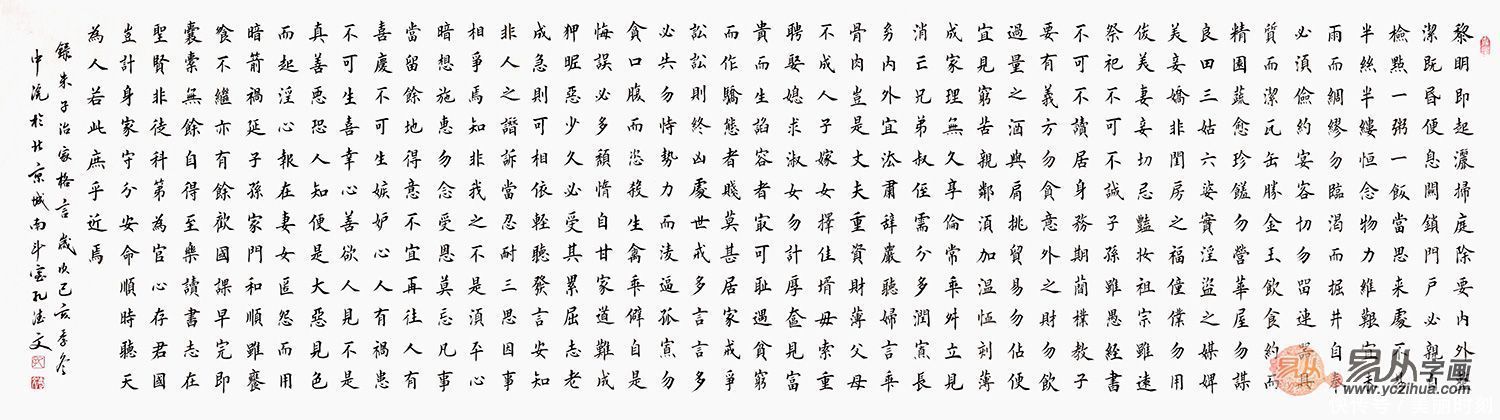 黎明即起灑掃庭除要內外整
潔既昏便息關鎖門戶必親自
檢點一粥一飯當思来處不易
半絲半縷恒念物力維艱宜未
雨而綢繆勿臨渴而掘井自奉
必須儉約宴客切勿留連器具
質而潔瓦缶勝金玉飲食約而
精園蔬愈珍饈勿營華屋勿謀
良田三姑六婆實淫盜之媒婢
美妾嬌非閨房之福僮僕勿用
俊美妻妾切忌豔妝祖宗雖遠
祭祀不可不誠子孫雖愚經書
不可不讀居身務期簡樸教子
要有義方勿貪意外之財勿飲
過量之酒與肩挑貿易勿佔便
宜見窮苦親鄰須加温恤刻薄
成家理無久享倫常乖舛立見
消亡兄弟叔侄需分多潤寡長
幼內外宜法肅辭嚴聽婦言乖
骨肉豈是丈夫重資財薄父母
不成人子嫁女擇佳壻毋索重
聘娶媳求淑女勿計厚奩見富
貴而生諂容者最可恥遇貧窮
而作驕態者賤莫甚居家戒爭
訟訟則終凶處世戒多言言多
必失勿恃勢力而凌逼孤寡勿
貪口腹而恣殺生禽乖僻自是
悔誤必多頹惰自甘家道難成
狎昵惡少久必受其累屈志老
成急則可相依輕聽發言安知
非人之譖訴當忍耐三思因事
相爭焉知非我之不是須平心
暗想施惠勿念受恩莫忘凡事
當留餘地得意不宜再往人有
喜慶不可生嫉妒心人有禍患
不可生喜幸心善欲人見不是
真善惡恐人知便是大惡見色
而起淫心報在妻女匿怨而用
暗箭禍延子孫家門和順雖饔
飧不繼亦有餘歡國課早完即
囊橐無餘自得至樂讀書志在
聖賢非徒科第為官心存君國
豈計身家守分安命順時聽天
為人若此庶乎近焉
錄朱子治家格言歲次己亥季冬
中浣於北京城南斗室孔德文
易从字画
www.yczihua.com